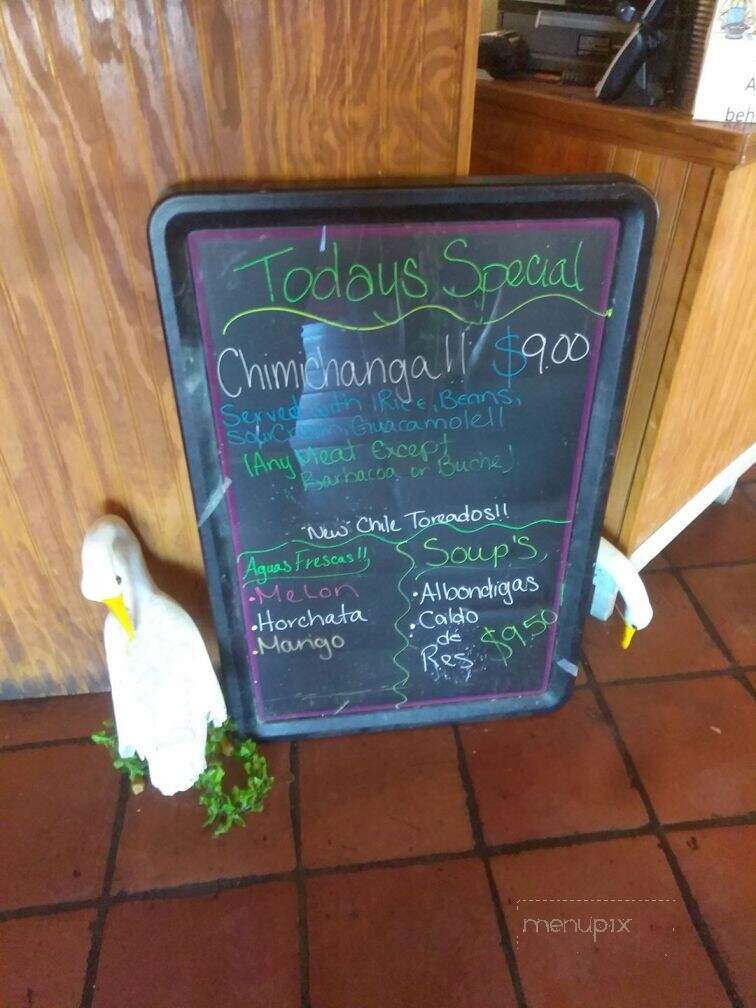 Todays Special
Chimichanga!! $9.00
Served with Rice, Beans,
Sour Cream, Guacamole!!
(Any Meat Except
Barbacoa or Buche)
New Chile Toreados!!
Aguas Frescas!!
• Melon
• Horchata
• Mango
Soup's
• Albondigas
• Caldo
de
Res $9.50
A
beh
menupix